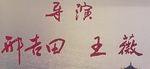 导演
邢吉田 王薇